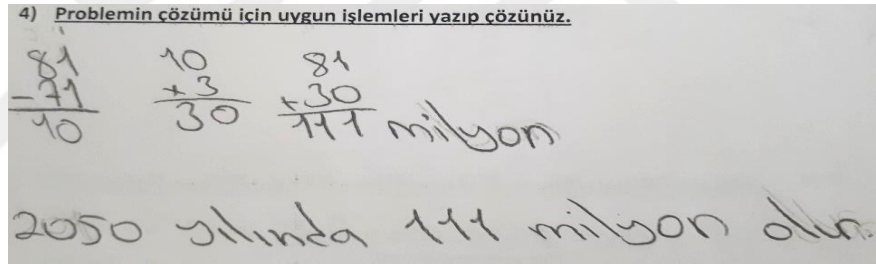 4) Problemin çözümü için uygun işlemleri yazıp çözünüz.
81 10 81
- 71 x 3 + 30
10 30 111 milyon
2050 yılında 111 milyon olur.